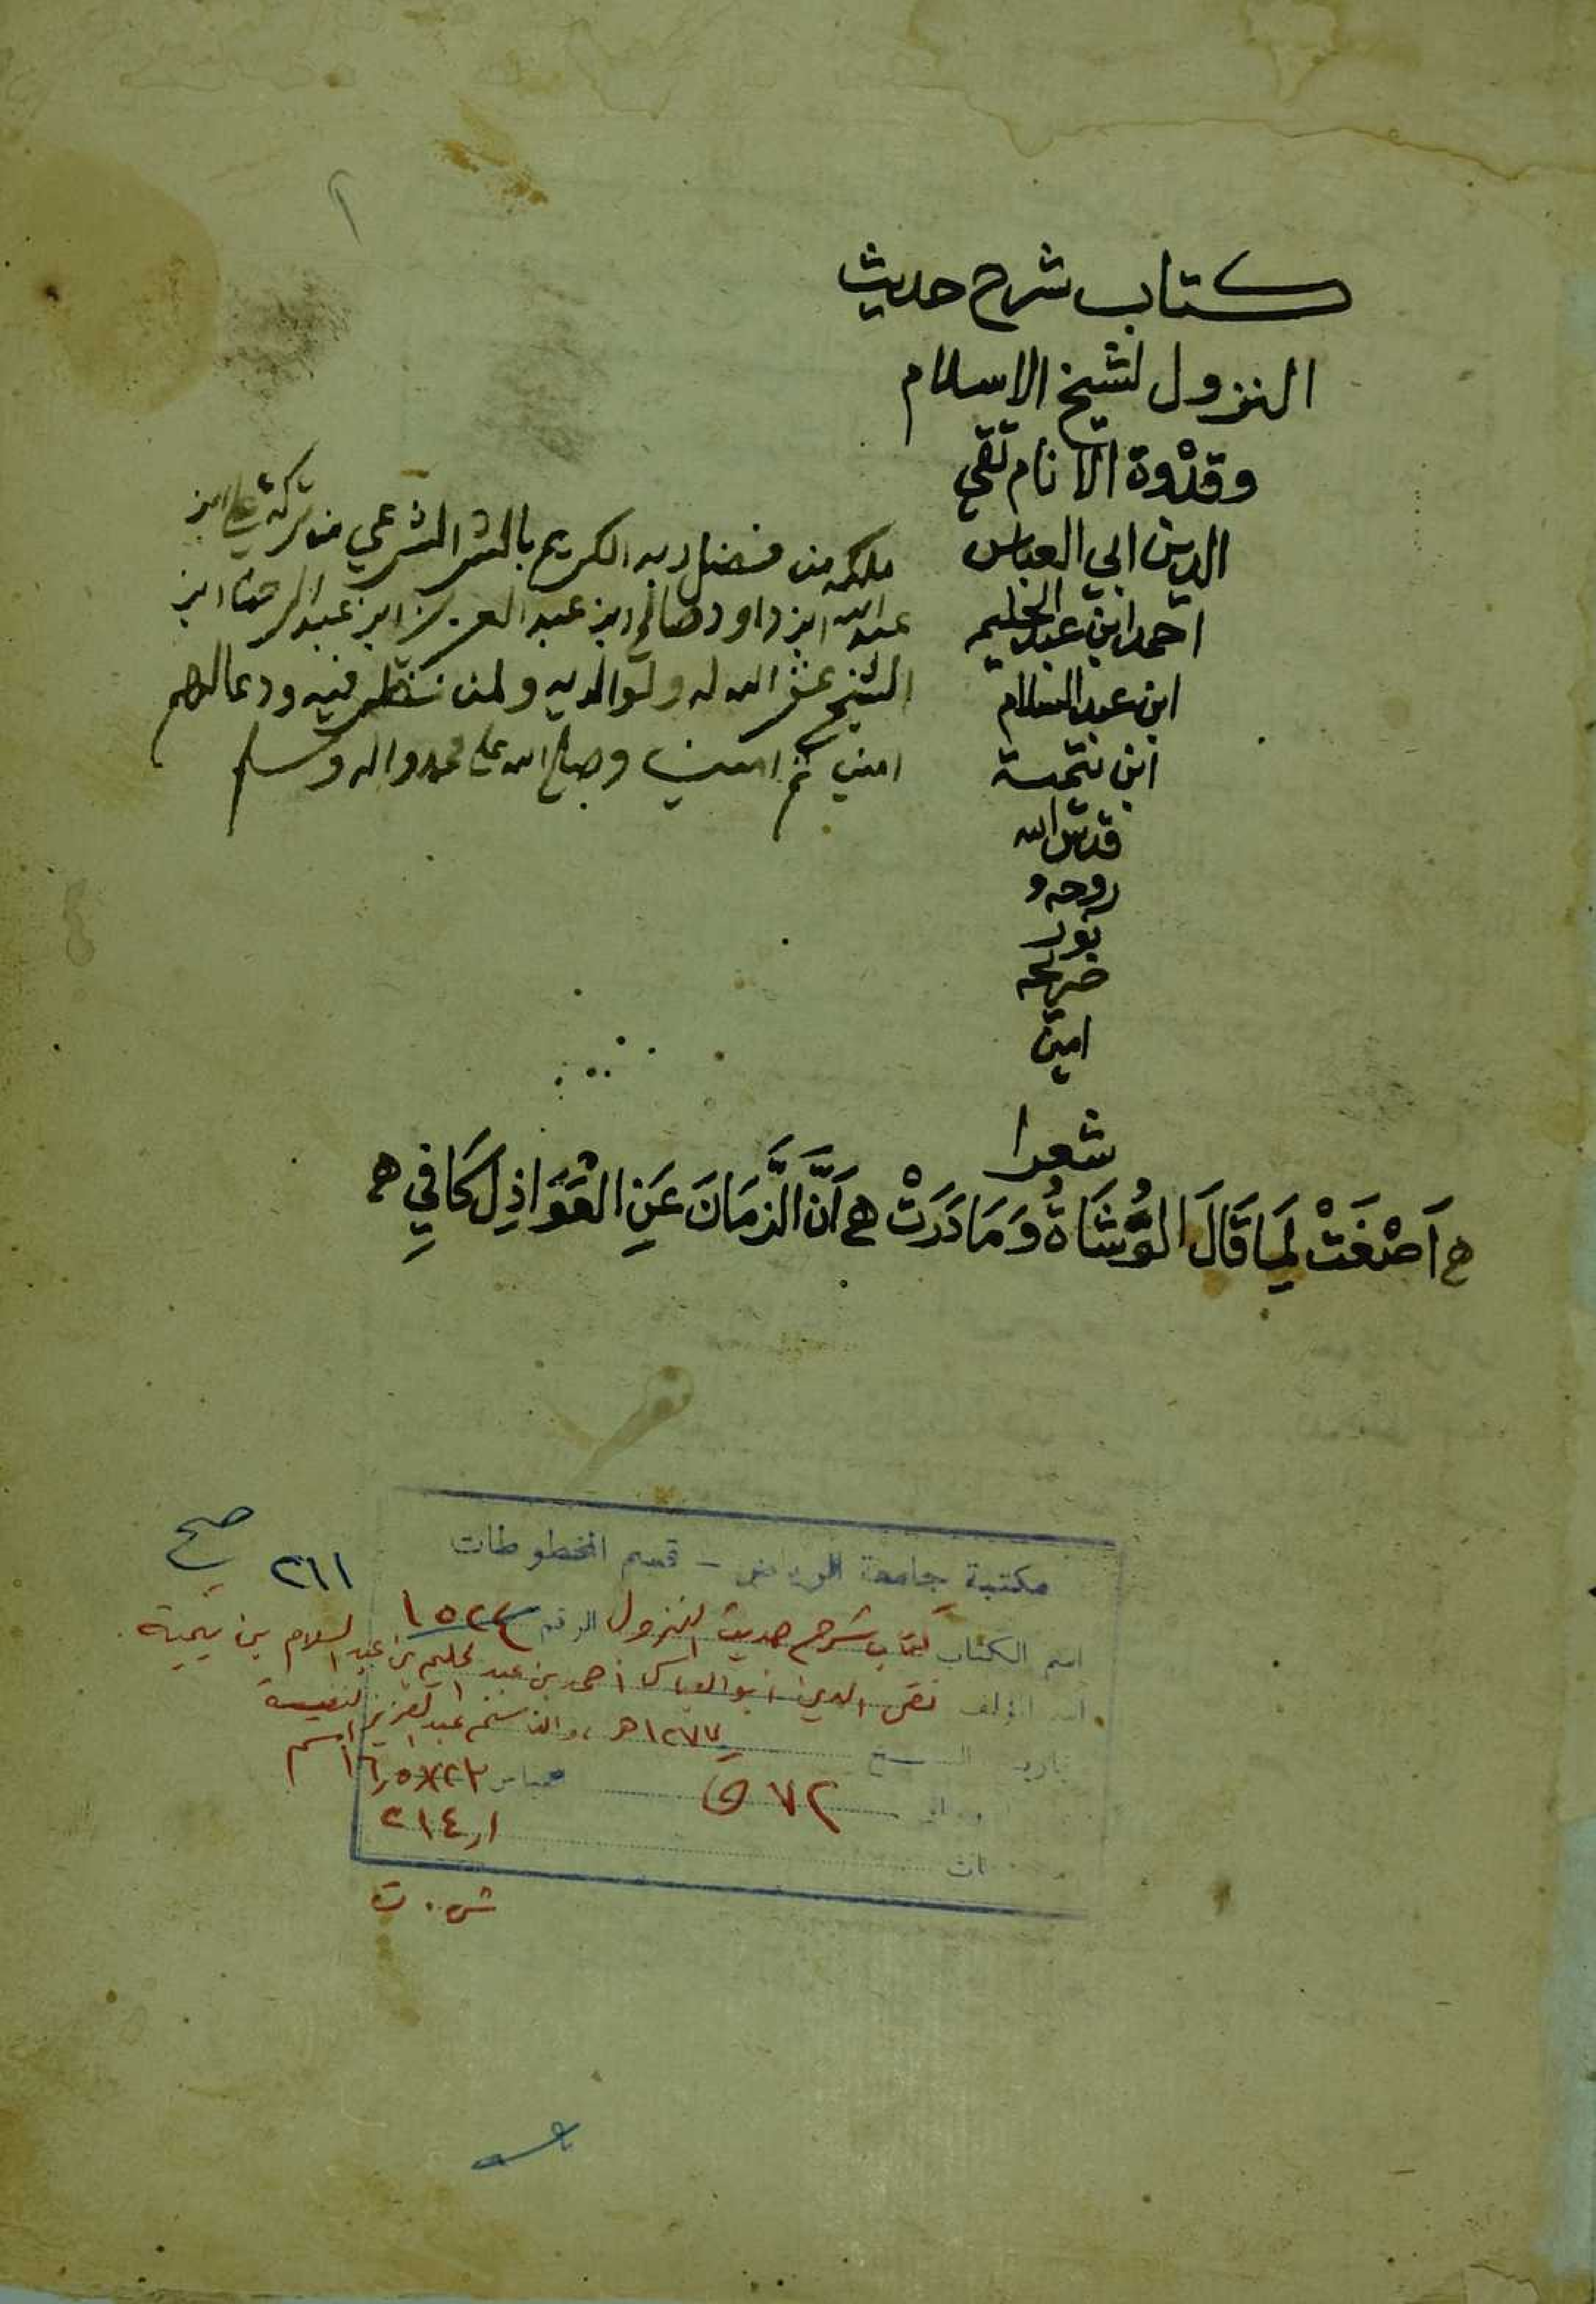 كتاب شرح حديث
النزول لشيخ الاسلام
وقدْوة الانام تقي
الدين ابي العباس
احمد ابن عبد الحليم
ابن عبد السلام
ابن تيمية
قدس الله
روحه و
نور
ضريحه
امين
ملكه من فضل ربه الكريم بالشر الشرعي من تركة علي ابن
عبد الله ابن داود صالح ابن عبد العزيز ابن عبد الرحمن ابن
الشيخ غفر الله له ولوالديه ولمن نظر فيه ودعا لهم
امين ثم امين وصلى الله على محمد واله وسلم
شعرا
هـ اَصْغَتْ لِمَا قَالَ الوُشَاةُ وَمَا دَرَتْ هـ اَنَّ الَّزمَانَ عَنِ العَوَاذِلِ كَافِي هـ
صح
٢٦١
مكتبة جامعة الرياض - قسم المخطوطات
اسم الكتاب كتاب شرح حديث النزول الرقم ١٥٢٤
اسم المؤلف تقي الدين ابو العباس أحمد بن عبد الحليم بن عبد السلام بن تيمية
تاريخ النسخ ١٢٧٧هـ، والناسخ عبد العزيز
٧٢ ق
٢١٤ر١
ش . ت